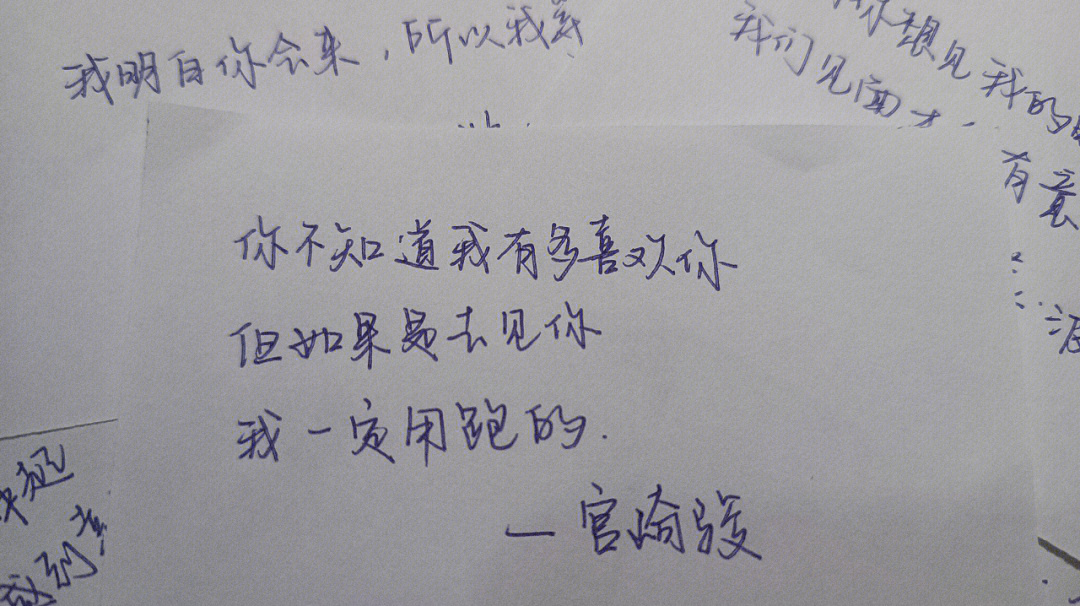 我明白你会来，所以我等
你想见我的
我们见面才
有意
你不知道我有多喜欢你
但如果是去见你
我一定用跑的.
—宫崎骏